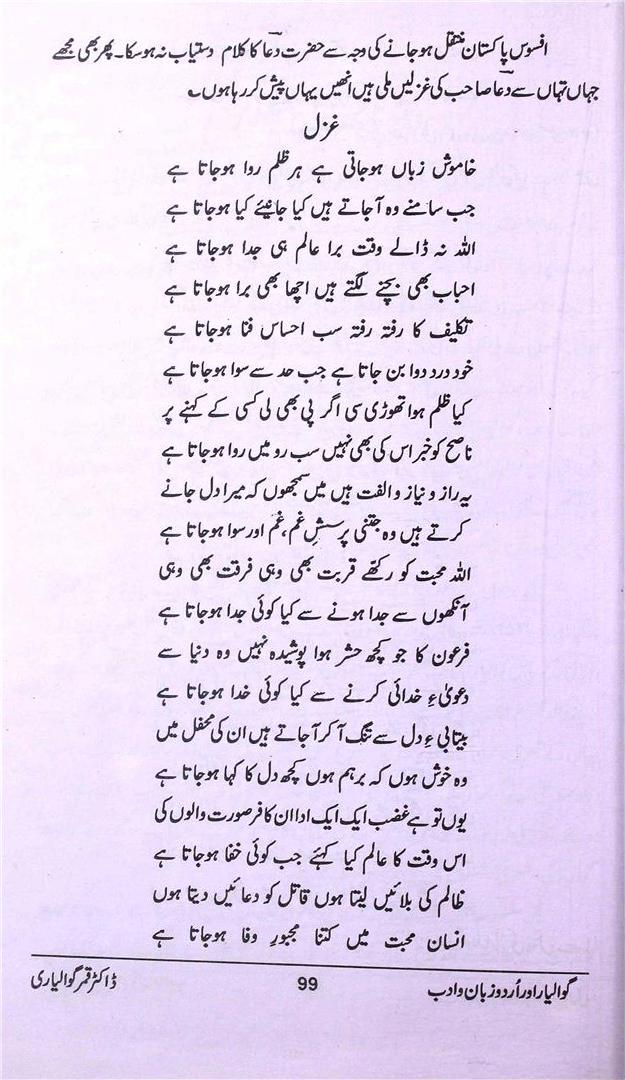 افسوس پاکستان منتقل ہوجانے کی وجہ سے حضرت دعاؔ کا کلام دستیاب نہ ہوسکا۔ پھر بھی مجھے
جہاں تہاں سے دعاؔ صاحب کی غزلیں ملی ہیں انھیں یہاں پیش کر رہا ہوں۔
غزل
خاموش زباں ہوجاتی ہے ہر ظلم روا ہوجاتا ہے
جب سامنے وہ آجاتے ہیں کیا جانیئے کیا ہوجاتا ہے
اللہ نہ ڈالے وقت برا عالم ہی جدا ہوجاتا ہے
احباب بھی بچنے لگتے ہیں اچھا بھی برا ہوجاتا ہے
تکلیف کا رفتہ رفتہ سب احساس فنا ہوجاتا ہے
خود درد دوا بن جاتا ہے جب حد سے سوا ہوجاتا ہے
کیا ظلم ہوا تھوڑی سی اگر پی بھی لی کسی کے کہنے پر
ناصح کو خبر اس کی بھی نہیں سب رو میں روا ہوجاتا ہے
یہ راز و نیاز و الفت ہیں میں سمجھوں کہ میرا دل جانے
کرتے ہیں وہ جتنی پرسشِ غم، غم اور سوا ہوجاتا ہے
اللہ محبت کو رکھے قربت بھی وہی فرقت بھی وہی
آنکھوں سے جدا ہونے سے کیا کوئی جدا ہوجاتا ہے
فرعون کا جو کچھ حشر ہوا پوشیدہ نہیں وہ دنیا سے
دعویٰءِ خدائی کرنے سے کیا کوئی خدا ہوجاتا ہے
بیتابیءِ دل سے تنگ آکر آجاتے ہیں ان کی محفل میں
وہ خوش ہوں کہ برہم ہوں کچھ دل کا کہا ہوجاتا ہے
یوں تو ہے غضب ایک ایک ادا ان کافر صورت والوں کی
اس وقت کا عالم کیا کہئے جب کوئی خفا ہوجاتا ہے
ظالم کی بلائیں لیتا ہوں قاتل کو دعائیں دیتا ہوں
انسان محبت میں کتنا مجبورِ وفا ہوجاتا ہے
گوالیار اور اُردو زبان و ادب 99 ڈاکٹر قمر گوالیاری